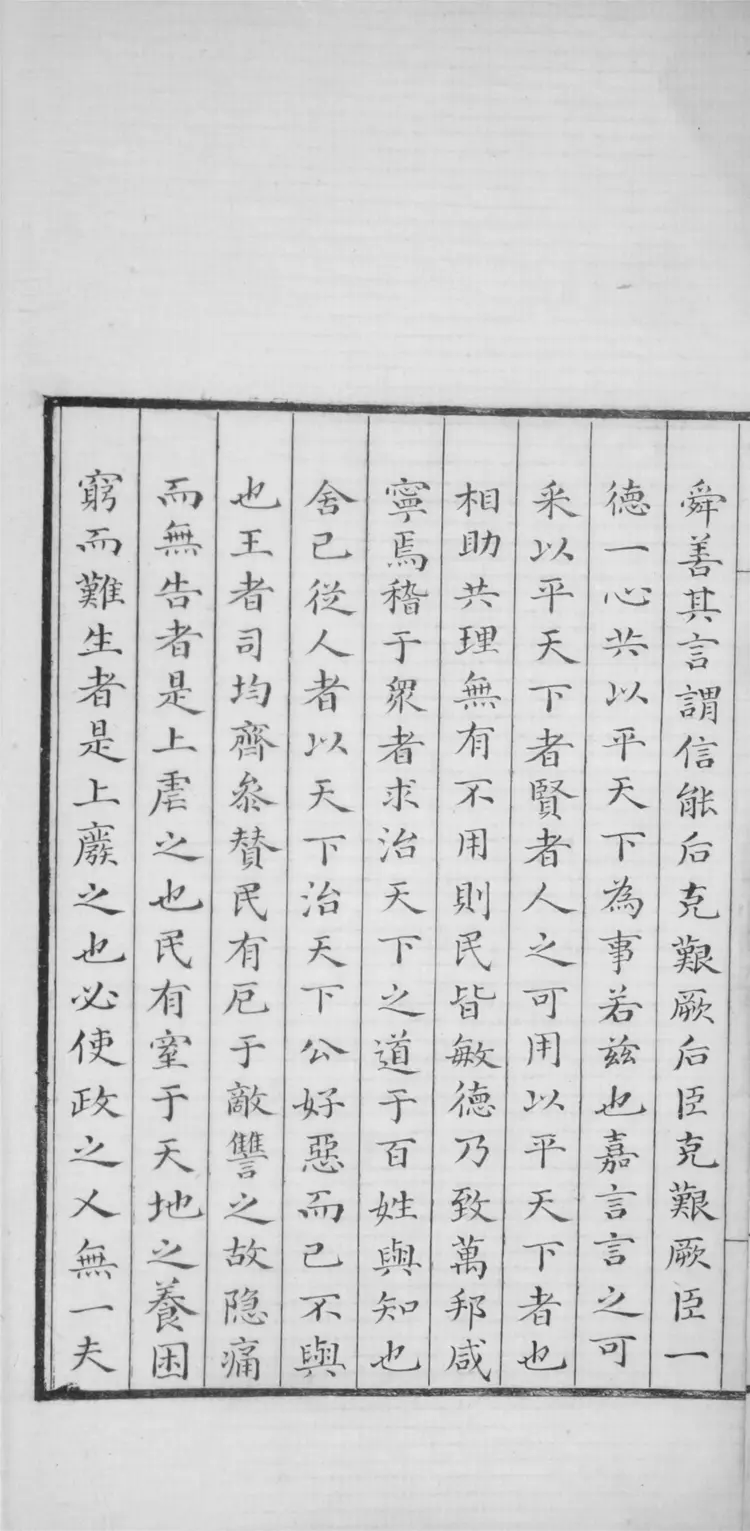 舜善其言謂信能后克艱厥后臣克艱厥臣一
德一心共以平天下為事若茲也嘉言言之可
采以平天下者賢者人之可用以平天下者也
相助共理無有不用則民皆敏德乃致萬邦咸
寧焉稽于衆者求治天下之道于百姓與知也
舍己從人者以天下治天下公好惡而己不與
也王者司均齊叅贊民有厄于敵讐之故隐痛
而無告者是上虐之也民有窒于天地之養困
窮而難生者是上廢之也必使政之乂無一夫